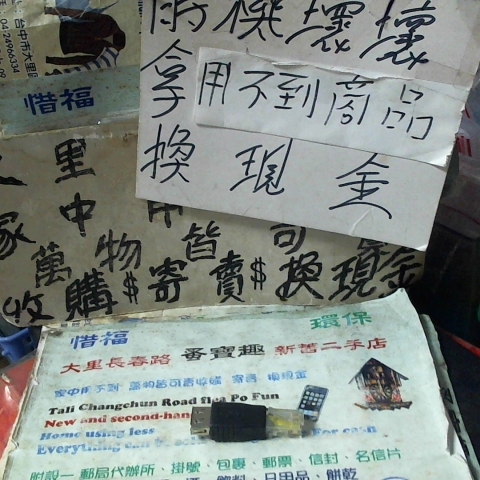 台中市大里區
04-24966334
惜福
雨機壞壞
拿用不到商品
換現金
里
中用
家 皆可
萬物
收購$寄賣$換現金
惜福 環保
大里長春路 番寶趣 新舊二手店
家中用不到 萬物皆可者收購 寄賣 換現金
Tali Changchun Road flea Po Fun
New and second-han
Home using less
Everything can b
For cash
附設－郵局代辦所、掛號、包裹、郵票、信封、名信片
飲料、日用品、餅乾